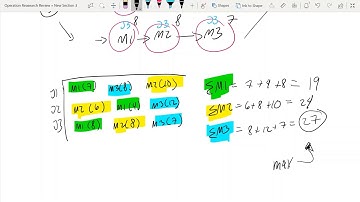 Operation Research Review » New Section 4
J3 8 J2 8 J3 7
M1 M2 M3
J1 M1(7) M3(8) M2(10)
J2 M2(6) M1(4) M3(12)
J3 M1(8) M2(8) M3(7)
ΣM1 = 7+4+8 = 19
ΣM2 = 6+8+10 = 24
ΣM3 = 8+12+7 = 27
max